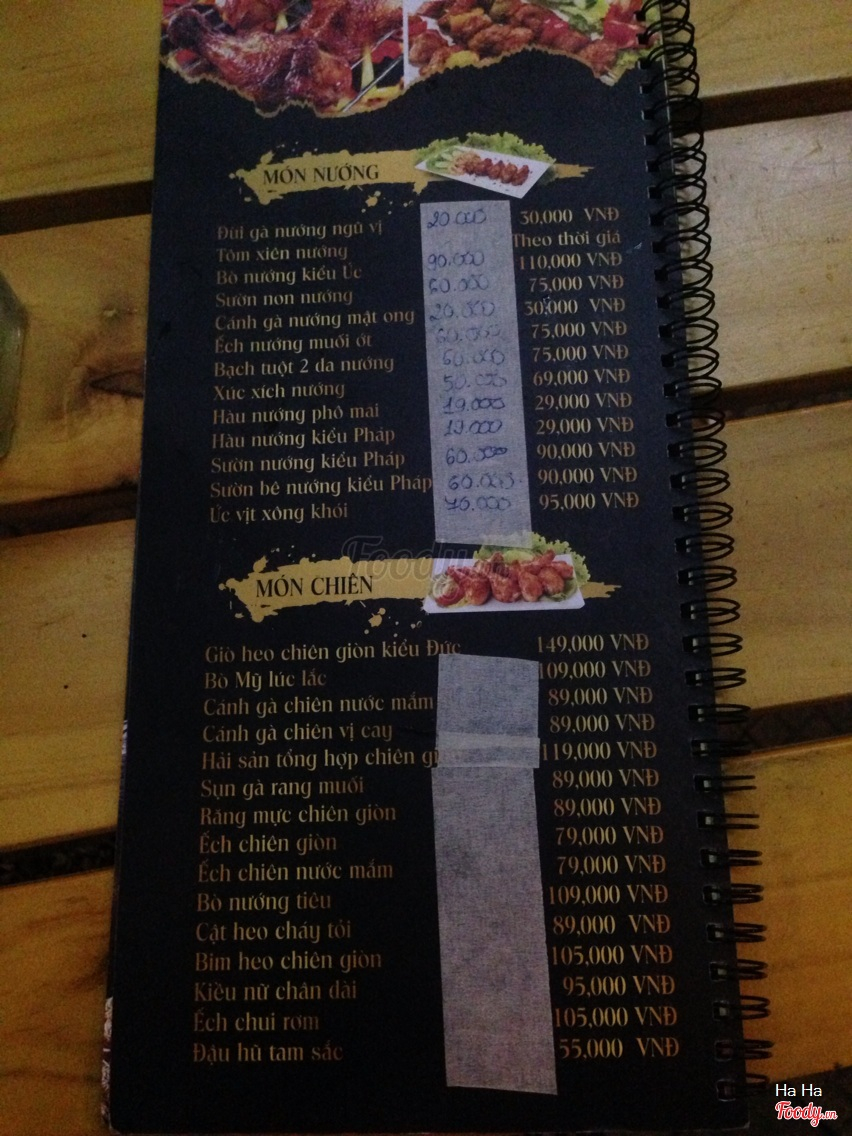 MÓN NƯỚNG
Đùi gà nướng ngũ vị 20.000 30,000 VNĐ
Tôm xiên nướng Theo thời giá
Bò nướng kiểu Úc 90.000 110,000 VNĐ
Sườn non nướng 60.000 75,000 VNĐ
Cánh gà nướng mật ong 20.000 30,000 VNĐ
Ếch nướng muối ớt 60.000 75,000 VNĐ
Bạch tuột 2 da nướng 60.000 75,000 VNĐ
Xúc xích nướng 50.000 69,000 VNĐ
Hàu nướng phô mai 19.000 29,000 VNĐ
Hàu nướng kiểu Pháp 19.000 29,000 VNĐ
Sườn nướng kiểu Pháp 60.000 90,000 VNĐ
Sườn bê nướng kiểu Pháp 60.000 90,000 VNĐ
Ức vịt xông khói 70.000 95,000 VNĐ
Foody.vn
MÓN CHIÊN
Giò heo chiên giòn kiểu Đức 149,000 VNĐ
Bò Mỹ lúc lắc 109,000 VNĐ
Cánh gà chiên nước mắm 89,000 VNĐ
Cánh gà chiên vị cay 89,000 VNĐ
Hải sản tổng hợp chiên gi 119,000 VNĐ
Sụn gà rang muối 89,000 VNĐ
Răng mực chiên giòn 89,000 VNĐ
Ếch chiên giòn 79,000 VNĐ
Ếch chiên nước mắm 79,000 VNĐ
Bò nướng tiêu 109,000 VNĐ
Cật heo cháy tỏi 89,000 VNĐ
Bim heo chiên giòn 105,000 VNĐ
Kiều nữ chân dài 95,000 VNĐ
Ếch chui rơm 105,000 VNĐ
Đậu hũ tam sắc 55,000 VNĐ
Ha Ha
Foody.vn